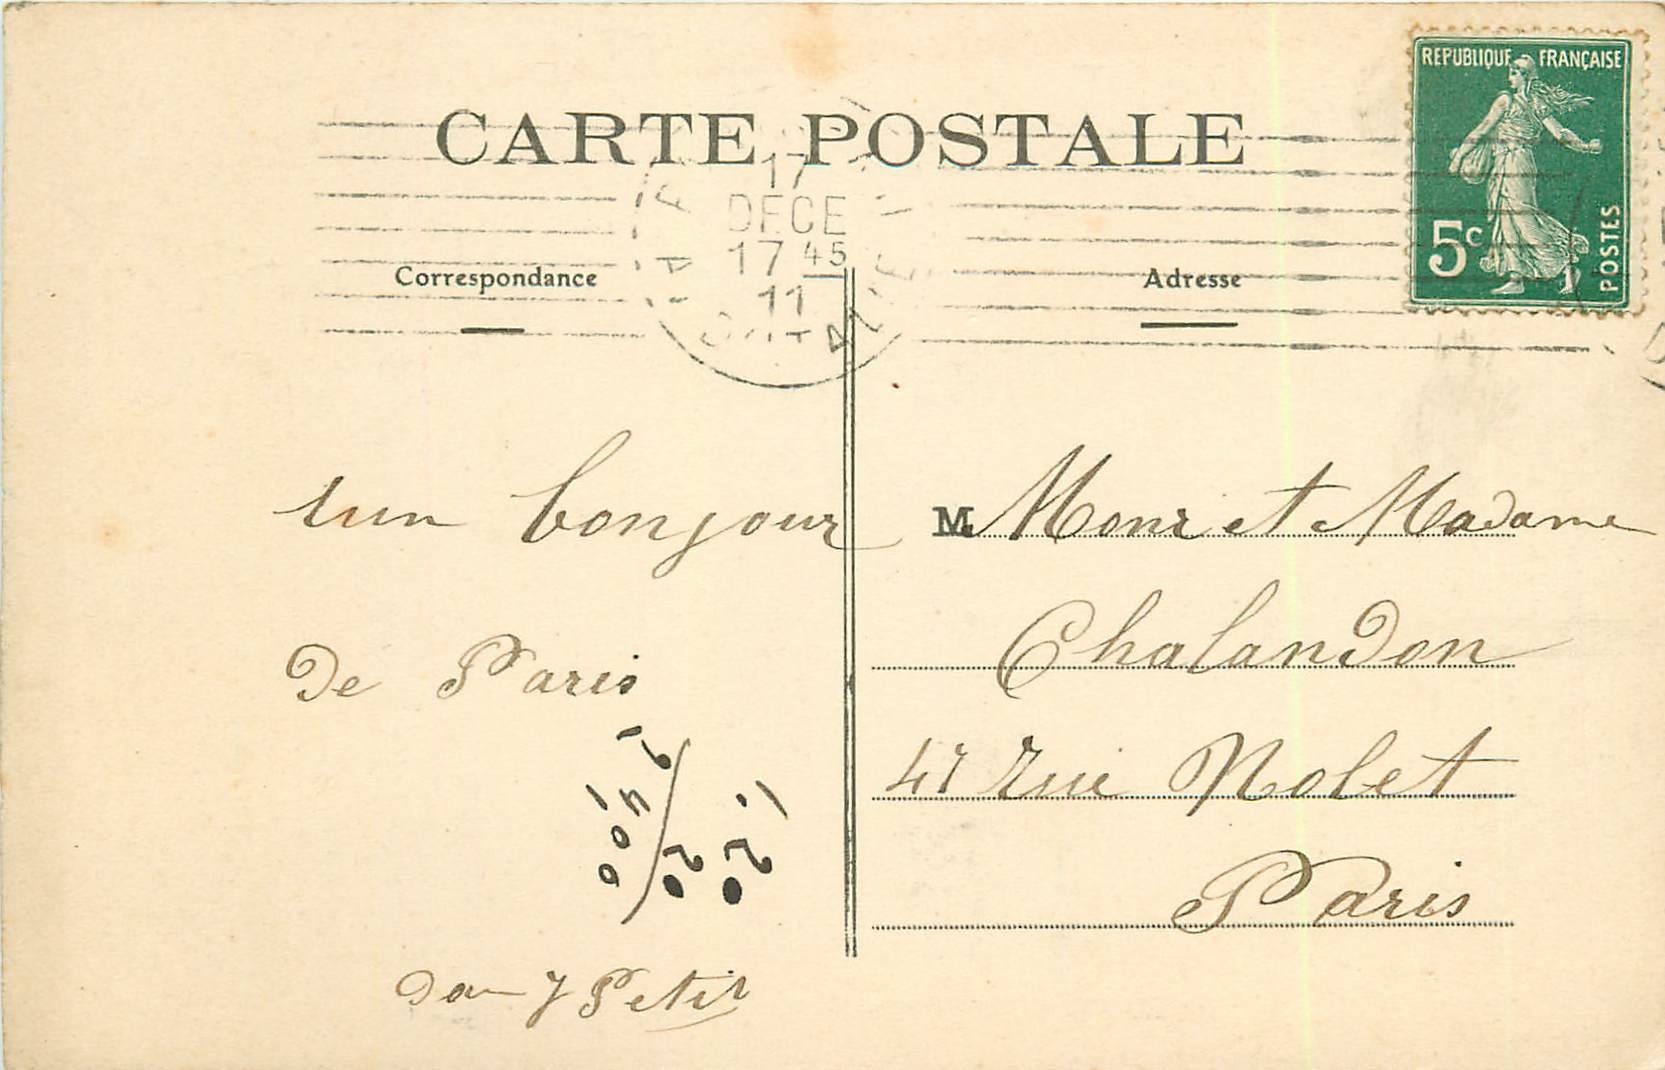 CARTE POSTALE
REPUBLIQUE FRANÇAISE
5c
POSTES
17
DECE
17 45
11
Correspondance
Adresse
un bonjour
De Paris
M Monr et Madame
Chalandon
47 rue Nolet
Paris
7 Petit